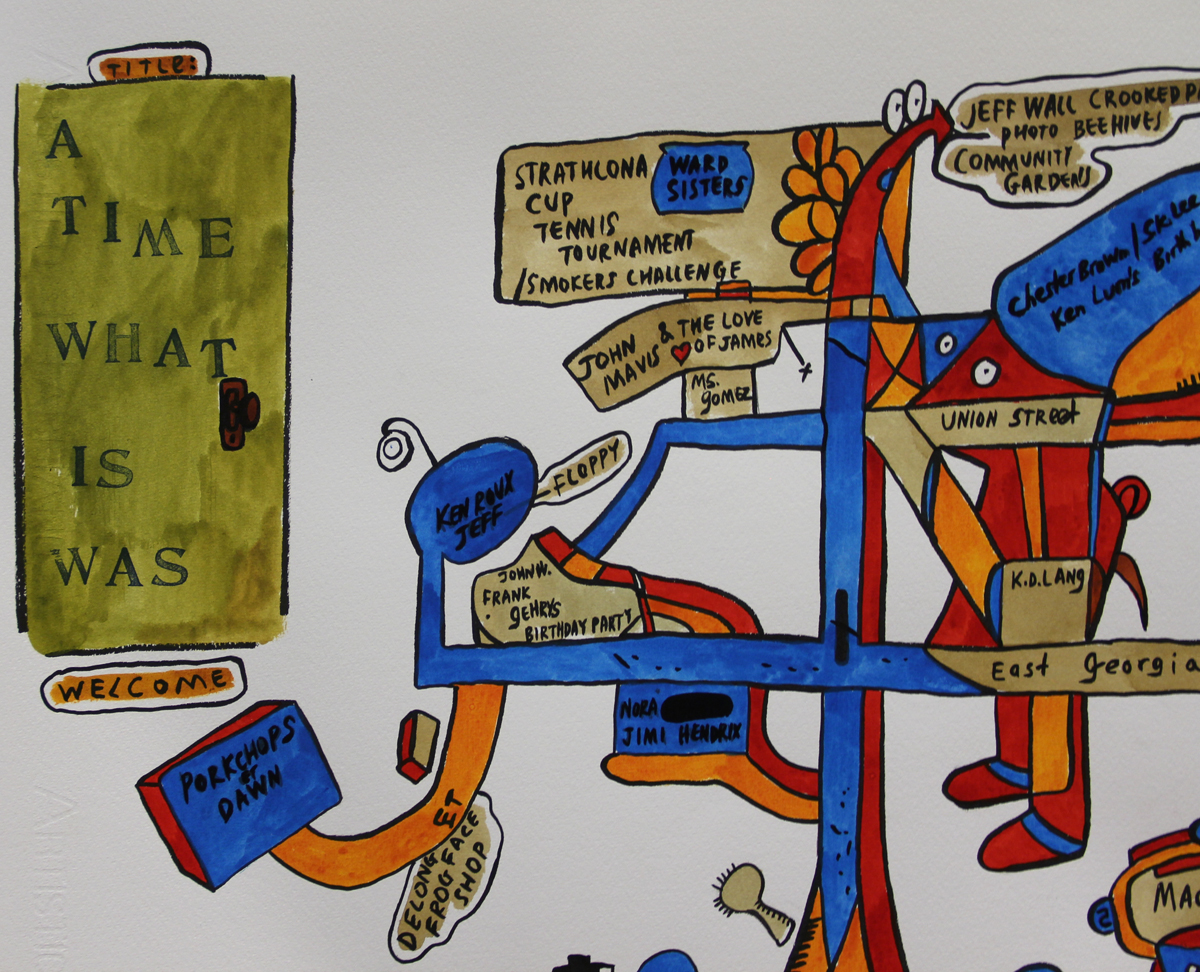 TITLE:
A
TIME
WHAT
IS
WAS
WELCOME
STRATHCONA
CUP
TENNIS
TOURNAMENT
/SMOKERS CHALLENGE
WARD
SISTERS
JEFF WALL CROOKED
PHOTO BEEHIVES
COMMUNITY
GARDENS
Chester Brown/SK Lee
Ken Lum's Birth
JOHN & THE LOVE
MAVIS OF JAMES
MS.
gOMEZ
UNION STREET
FLOPPY
KEN ROUX
JEFF
JOHN W.
FRANK
gEHRYS
BIRTHDAY PARTY
K.D. LANg
East georgia
NORA
JIMI HENDRIX
PORKCHOPS
at
DAWN
ET
DELONG
FROG FACE
SHOP
MAC